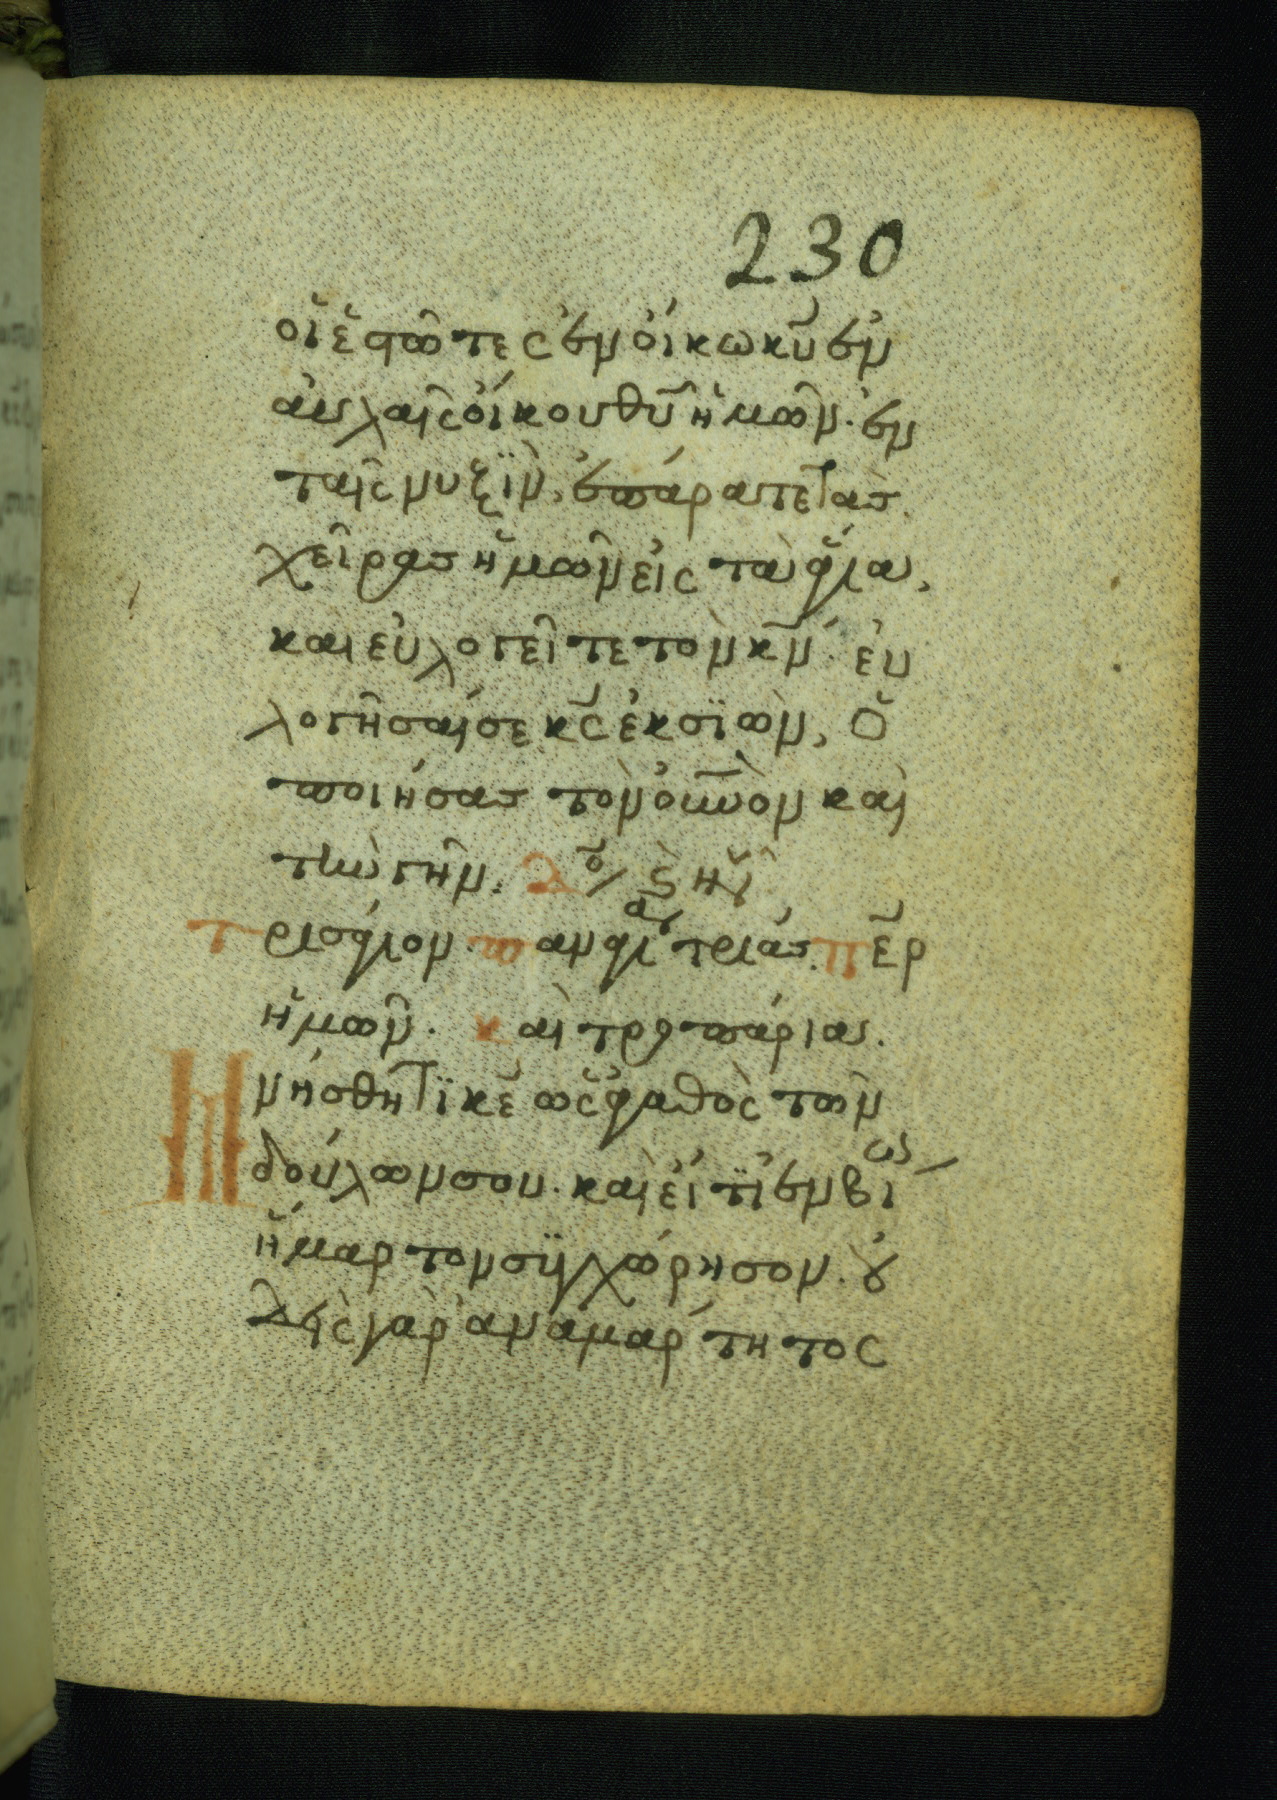 230
οἱ ἑστῶτες ἐν οἴκω κῡ ἐν
αὐλαῖς οἴκου θῡ ἡμῶν· ἐν
ταῖς νυξὶν, ἐπάρατε τὰς
χεῖρας ἡμῶν εἰς τὰ ἅγια,
καὶ εὐλογεῖτε τὸν κ̄ν· εὐ
λογήσαι σε κ̄ς ἐκ σϊὼν, ὁ
ποιήσας τὸν οὐνὸν καὶ
τὴν γῆν:
τρισάγιον· παναγία τριάς· περ
ἡμῶν· καὶ τροπάρια·
μνήσθητϊ κε̄ ὡς ἀγαθὸς τῶν
δούλων σου· καὶ εἴ τϊ ἐν βίω
ἥμαρτον συγχώρησον· οὐ
δεὶς γὰρ ἀναμάρτητος